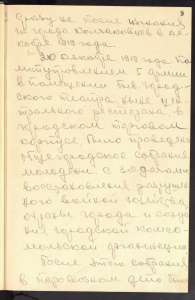 3
сразу же после изгнания
из города Колчаковцев в де-
кабре 1919 года.
30 декабря 1919 года По-
литуправлением 5 армии
в помещении быв. Город-
ского театра, ныне цен-
трального ресторана в
городском торговом
корпусе было проведено
общегородское собрание
молодежи с задачами
восстановления разрушен-
ного войной хозяйства,
охраны города и созда-
ния городской комсо-
мольской организации.
После этого собрания
в паровозном депо был